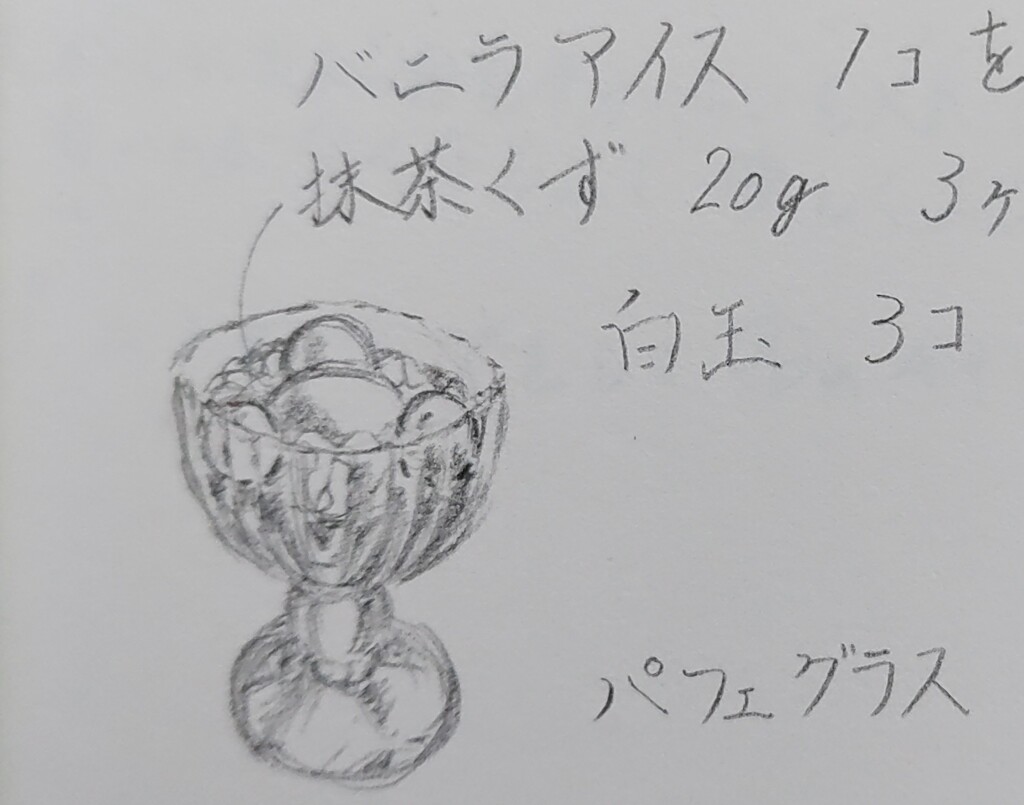 バニラアイス 1コを
抹茶くず 20g 3ヶ
白玉 3コ
パフェグラス